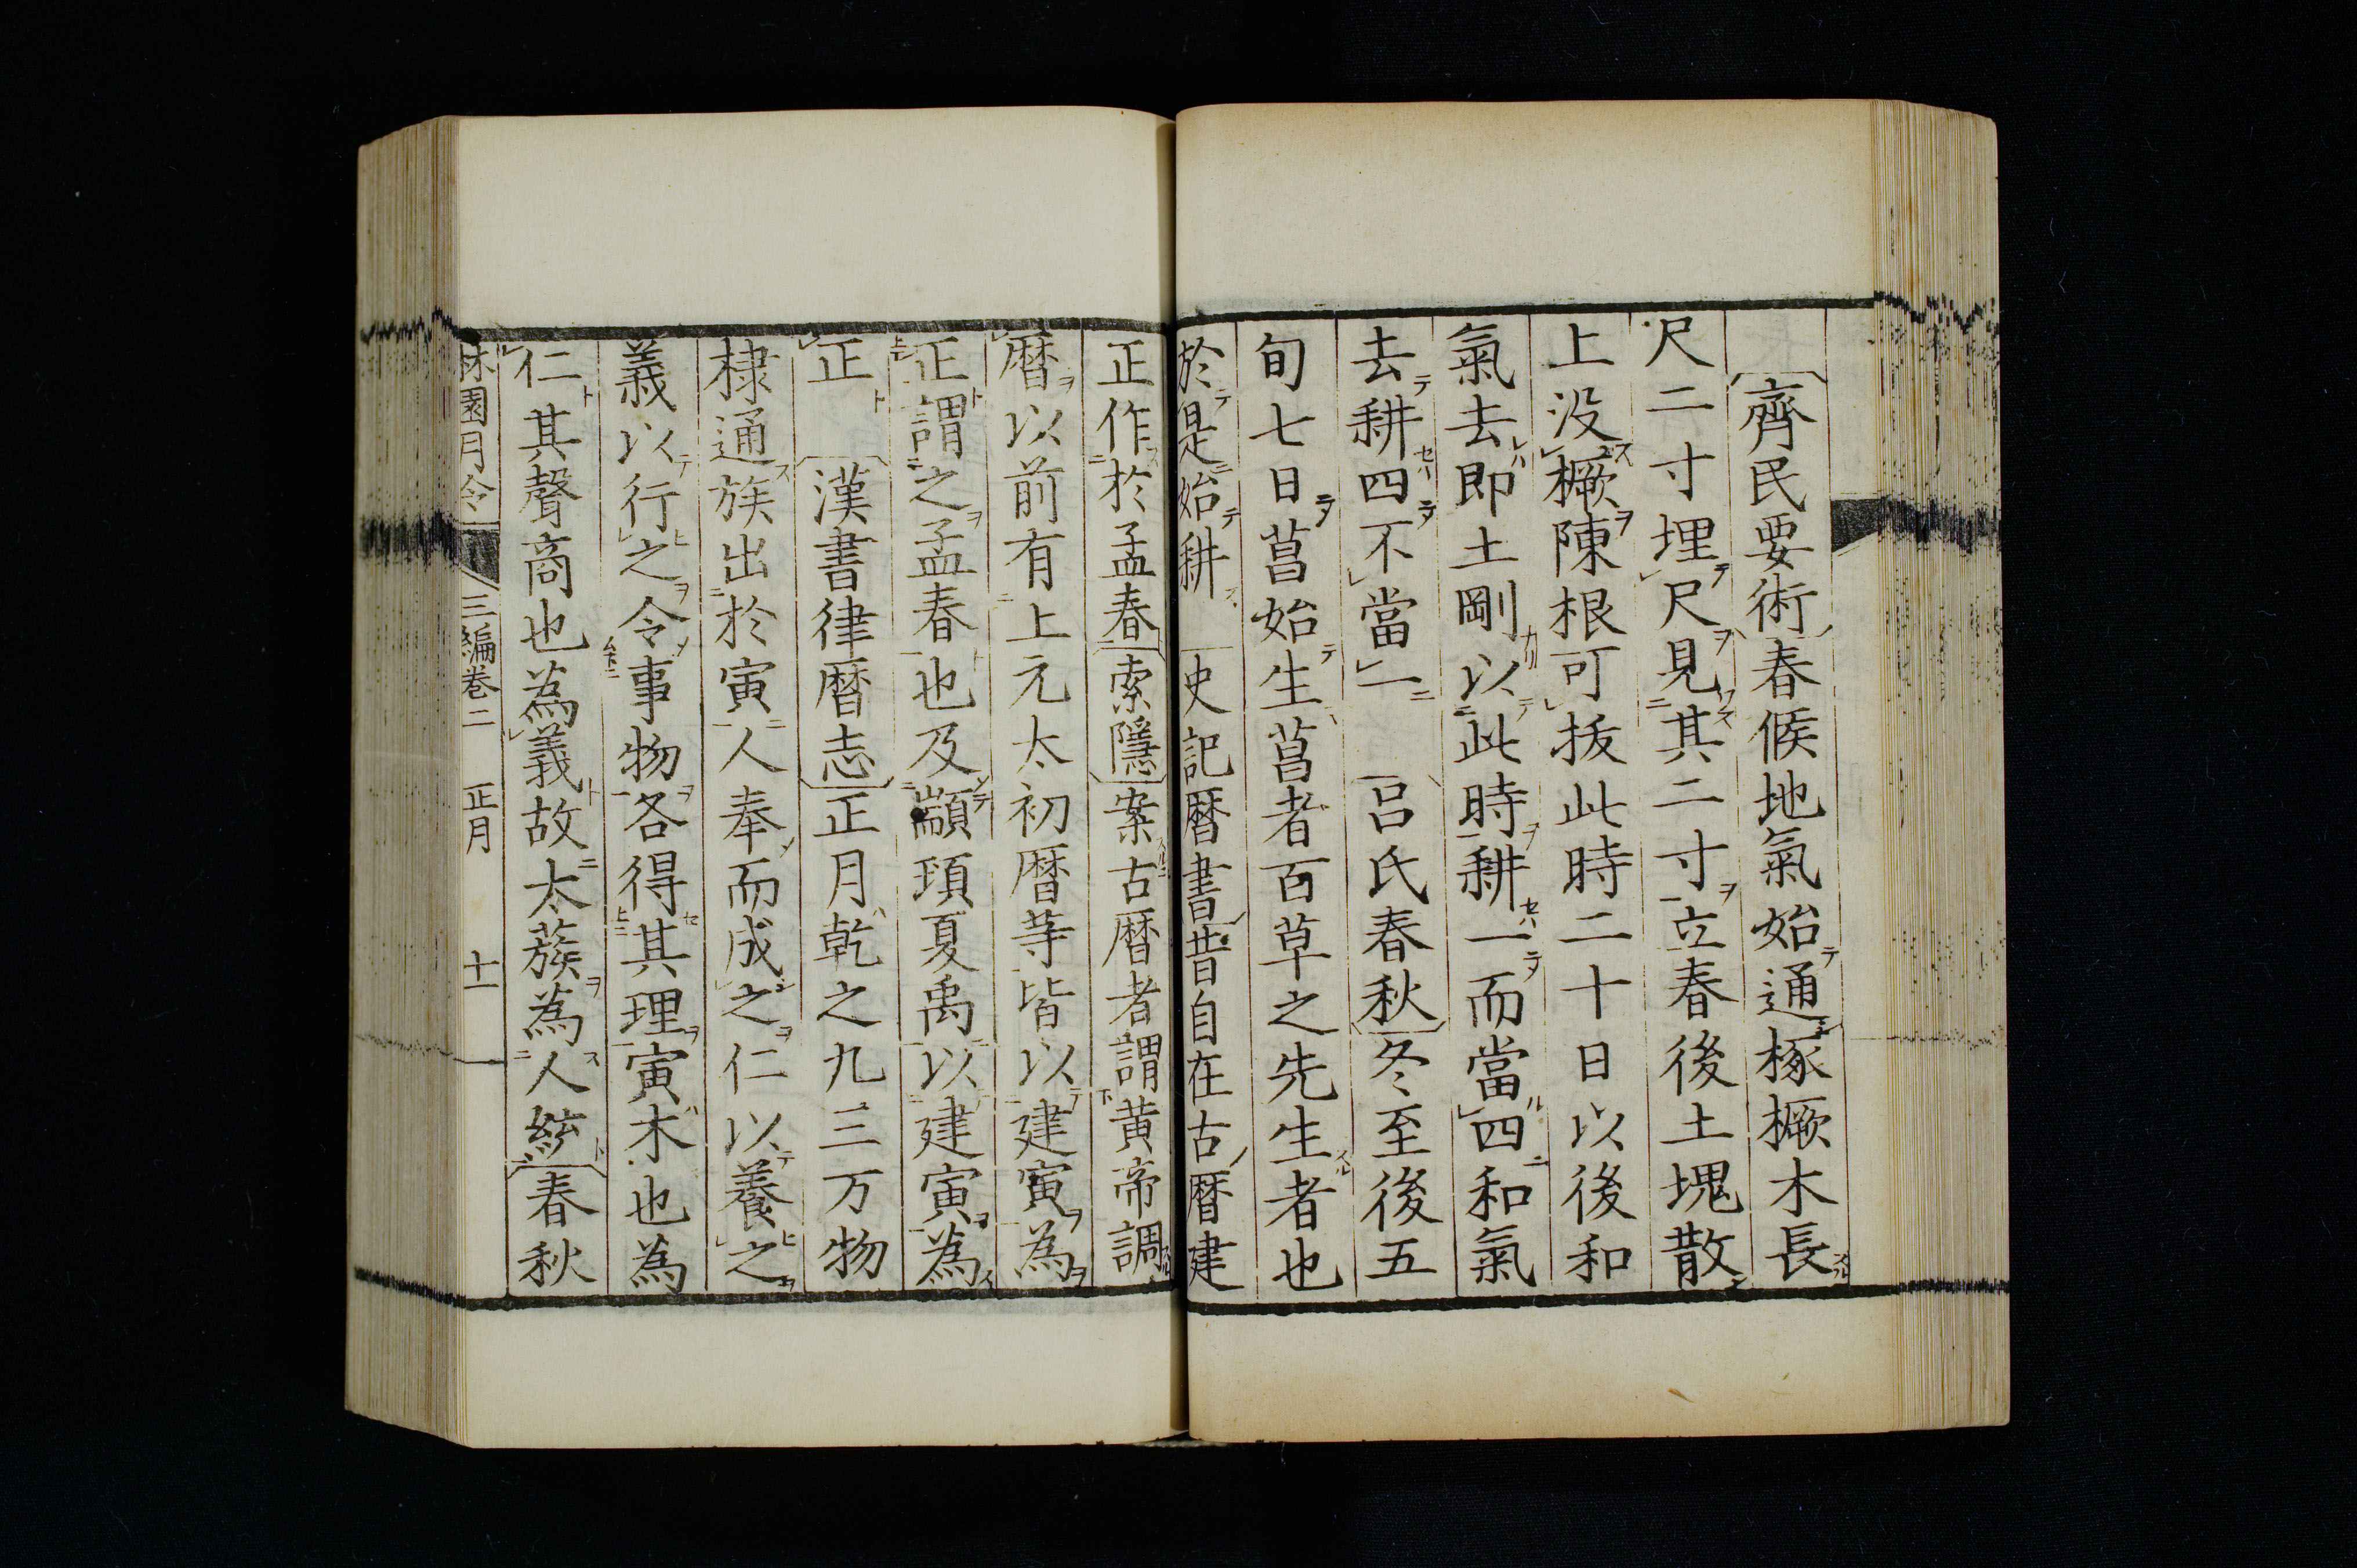 齊民要術春候地氣始通椓橛木長
尺二寸埋尺見其二寸立春後土塊散
上没橛陳根可拔此時二十日以後和
氣去即土剛以此時耕一而當四和氣
去耕四不當一 呂氏春秋冬至後五
旬七日菖始生菖者百草之先生者也
於是始耕 史記暦書昔自在古暦建
正作於孟春索隱案古暦者謂黄帝調
暦以前有上元太初暦等皆以建寅為
正謂之孟春也及顓頊夏禹以建寅為
正 漢書律暦志正月乾之九三万物
棣通族出於寅人奉而成之仁以養之
義以行之令事物各得其理寅木也為
仁其聲商也為義故太蔟為人統春秋
林園月令 三編卷二 正月 十一